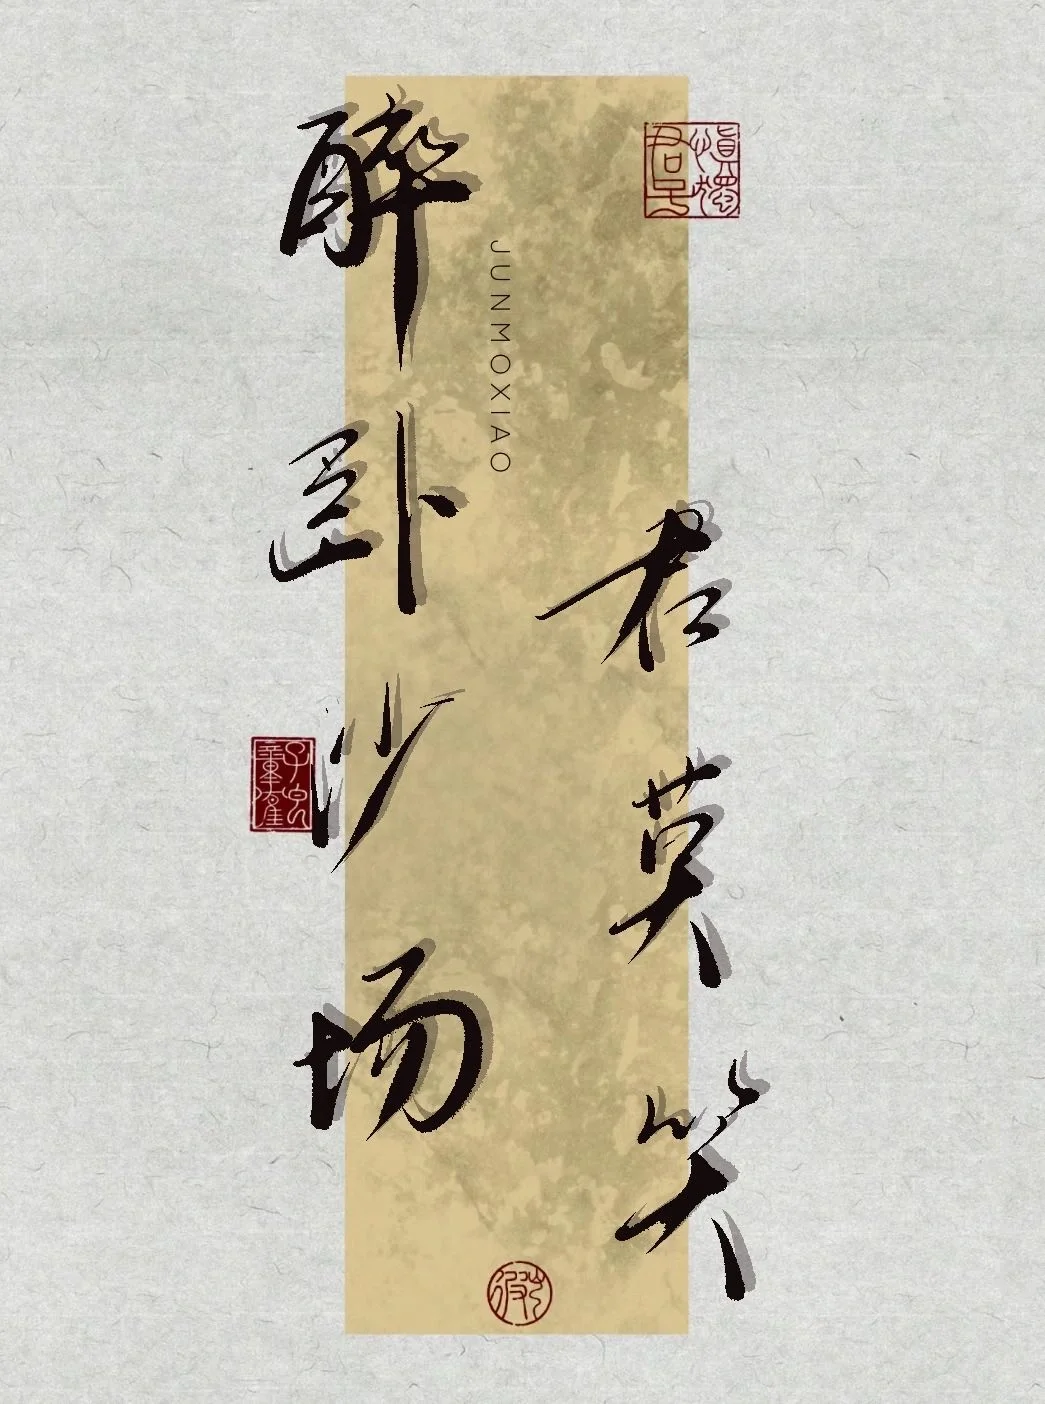 醉卧沙场
JUNMOXIAO
君莫笑